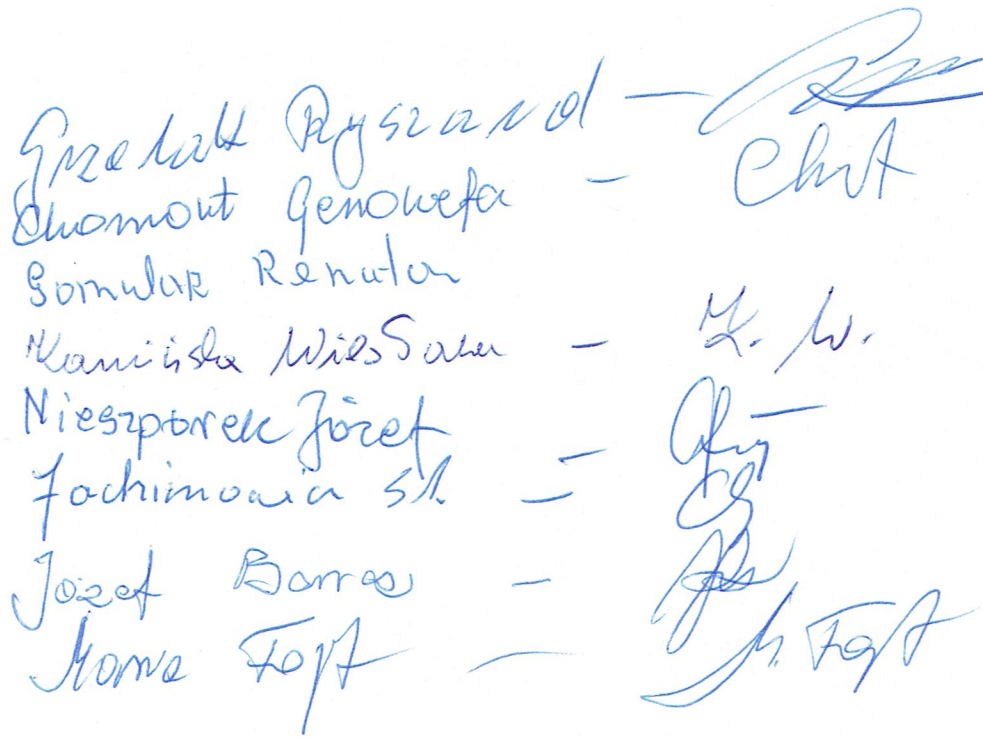 Grzelak Ryszard —
Chomont Genowefa –
Gomular Renata
Kamińska Wiesława – K. W.
Nieszporek Józef –
Jachimowicz St. –
Józef Barros –
Maria Fojt — M. Fojt